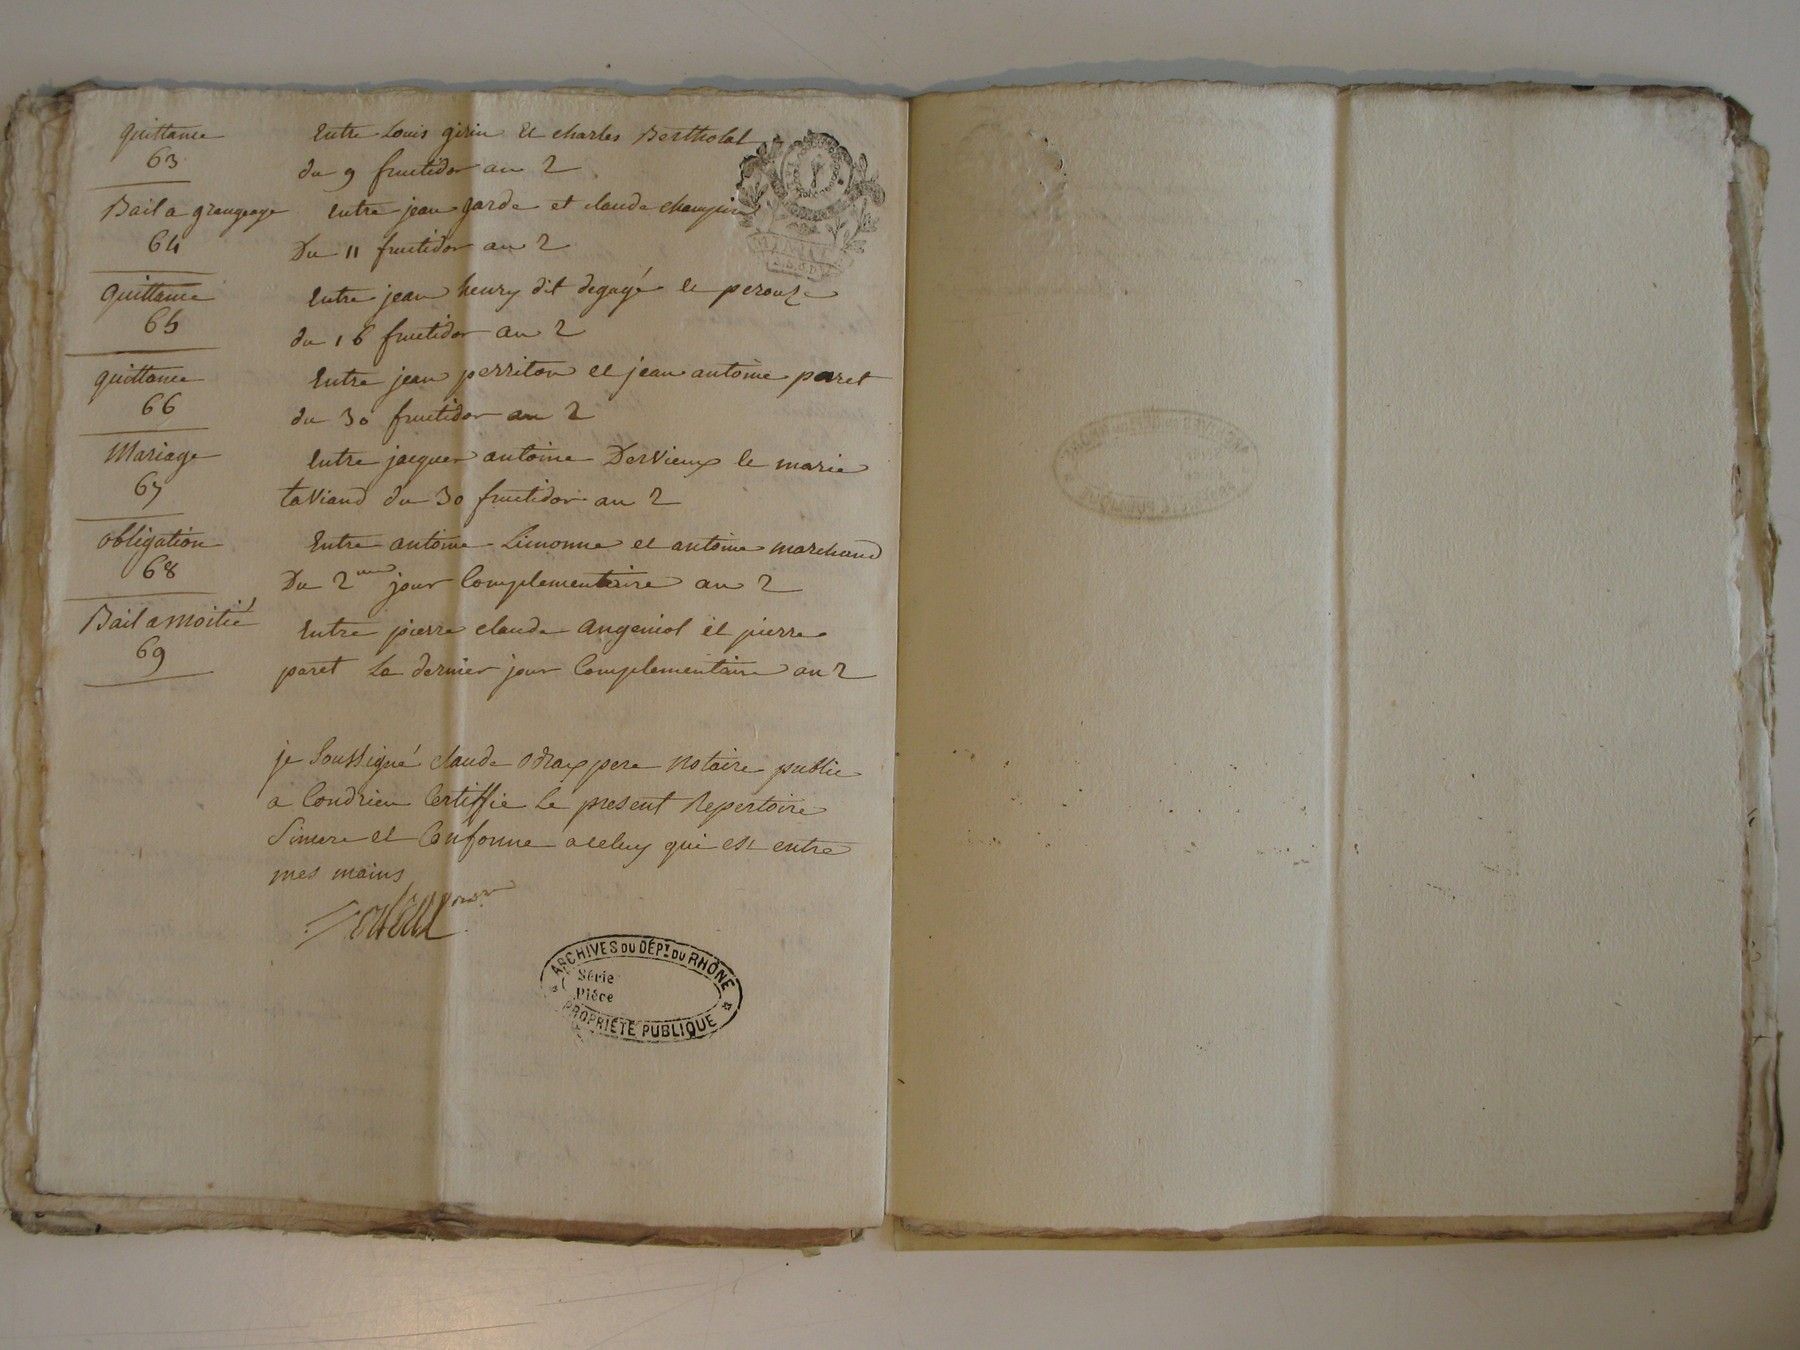 quittance
63
Entre Louis girin et charles Bertholat
du 9 fructidor an 2
Bail a grangeage
64
Entre jean garde et claude champin
Du 11 fructidor an 2
quittance
65
Entre jean henry dit degagé et perouze
du 16 fructidor an 2
quittance
66
Entre jean perriton et jean antoine paret
du 30 fructidor an 2
Mariage
67
Entre jacques antoine Dervieux et marie
taviand du 30 fructidor an 2
obligation
68
Entre antoine Limonne et antoine marchand
Du 2me jour Complementaire an 2
Bail a moitié
69
Entre pierre claude angeniol et pierre
paret Le dernier jour Complementaire an 2
je Soussigné claude pere Notaire public
a Condrieu Certiffie Le present Repertoire
Sincere et Conforme a celuy qui est entre
mes mains
ARCHIVES DU DÉPT DU RHÔNE
Série
Pièce
PROPRIÉTÉ PUBLIQUE